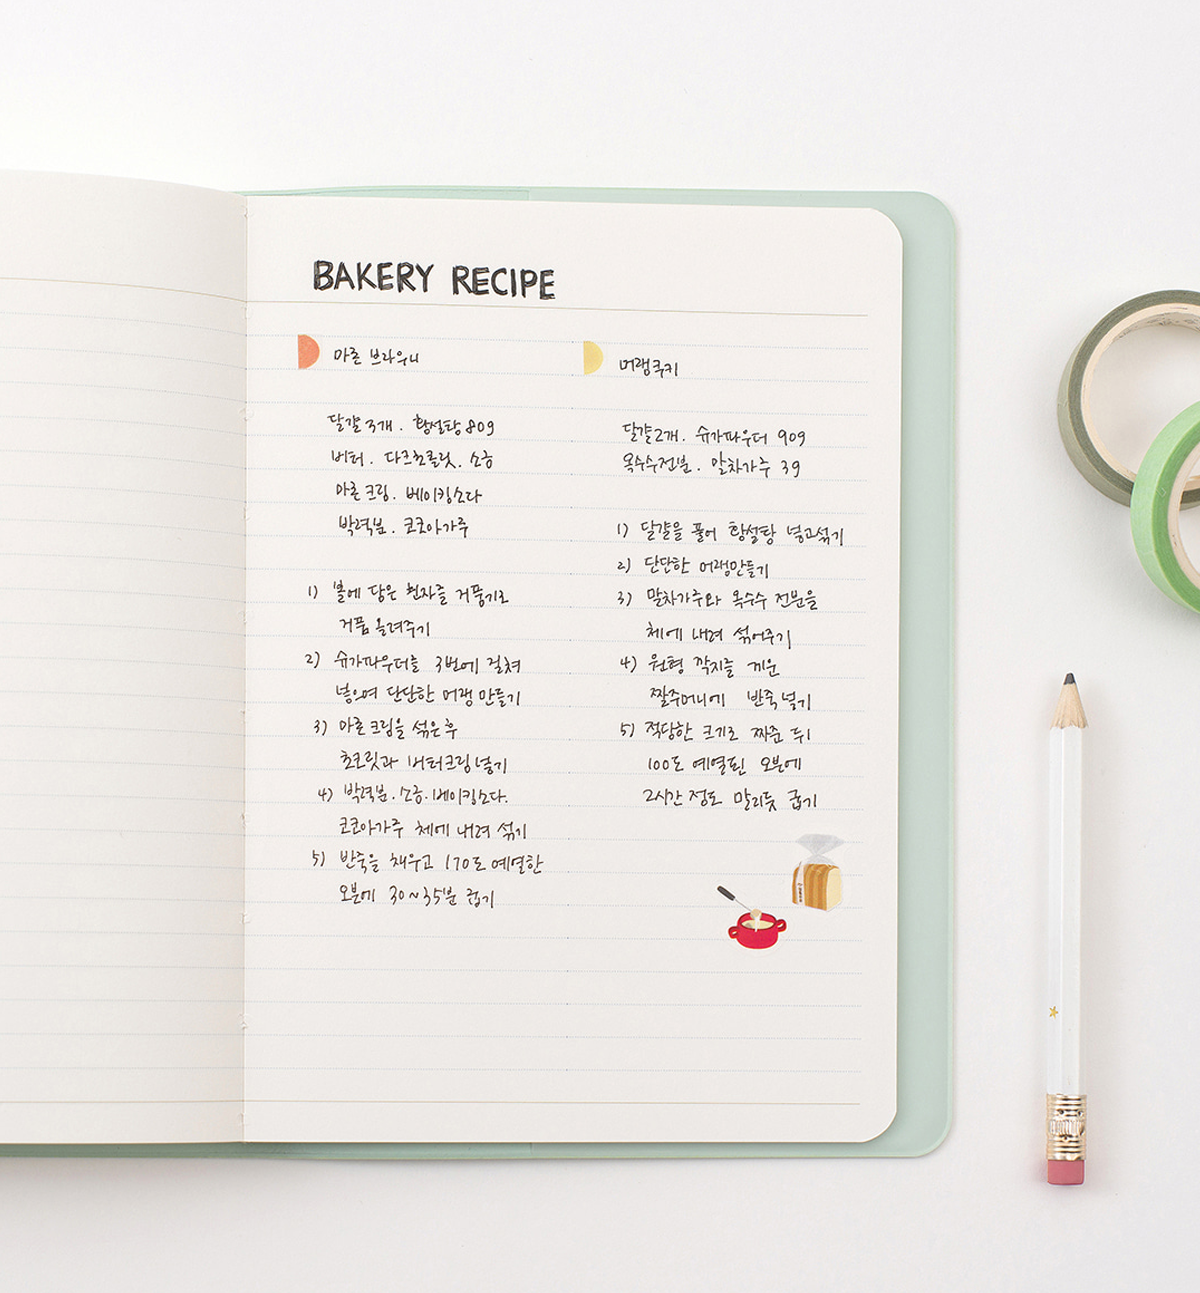 BAKERY RECIPE
마론 브라우니
달걀 3개. 황설탕 80g
버터. 다크초콜릿. 소금
마론크림. 베이킹소다
박력분. 코코아가루
1) 볼에 담은 흰자를 거품기로
거품 올려주기
2) 슈가파우더를 3번에 걸쳐
넣으며 단단한 머랭 만들기
3) 마론크림을 섞은 후
초코릿과 버터크림 넣기
4) 박력분. 소금. 베이킹소다.
코코아가루 체에 내려 섞기
5) 반죽을 채우고 170도 예열한
오븐에 30~35분 굽기
머랭쿠키
달걀2개. 슈가파우더 90g
옥수수전분. 말차가루 3g
1) 달걀을 풀어 황설탕 넣고섞기
2) 단단한 머랭만들기
3) 말차가루와 옥수수 전분을
체에 내려 섞어주기
4) 원형 깍지를 끼운
짤주머니에 반죽 넣기
5) 적당한 크기로 짜준 뒤
100도 예열된 오븐에
2시간 정도 말리듯 굽기